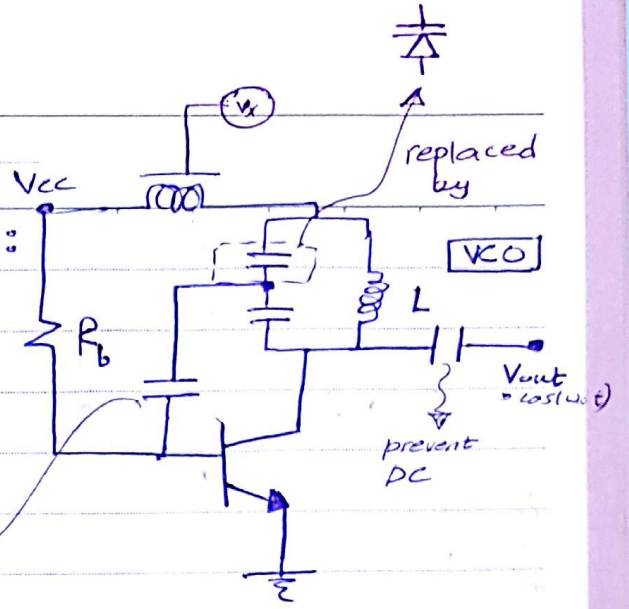 Vx
replaced
by
Vcc
:
VCO
L
Rb
Vout
prevent
DC